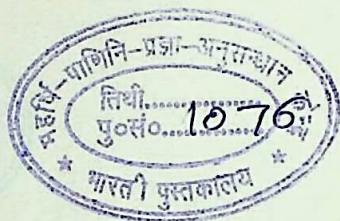 महर्षि-पाणिनि-प्रज्ञा-अनुसन्धान केन्द्र
तिथी..................
पु०सं०. 1076
* भारती पुस्तकालय *